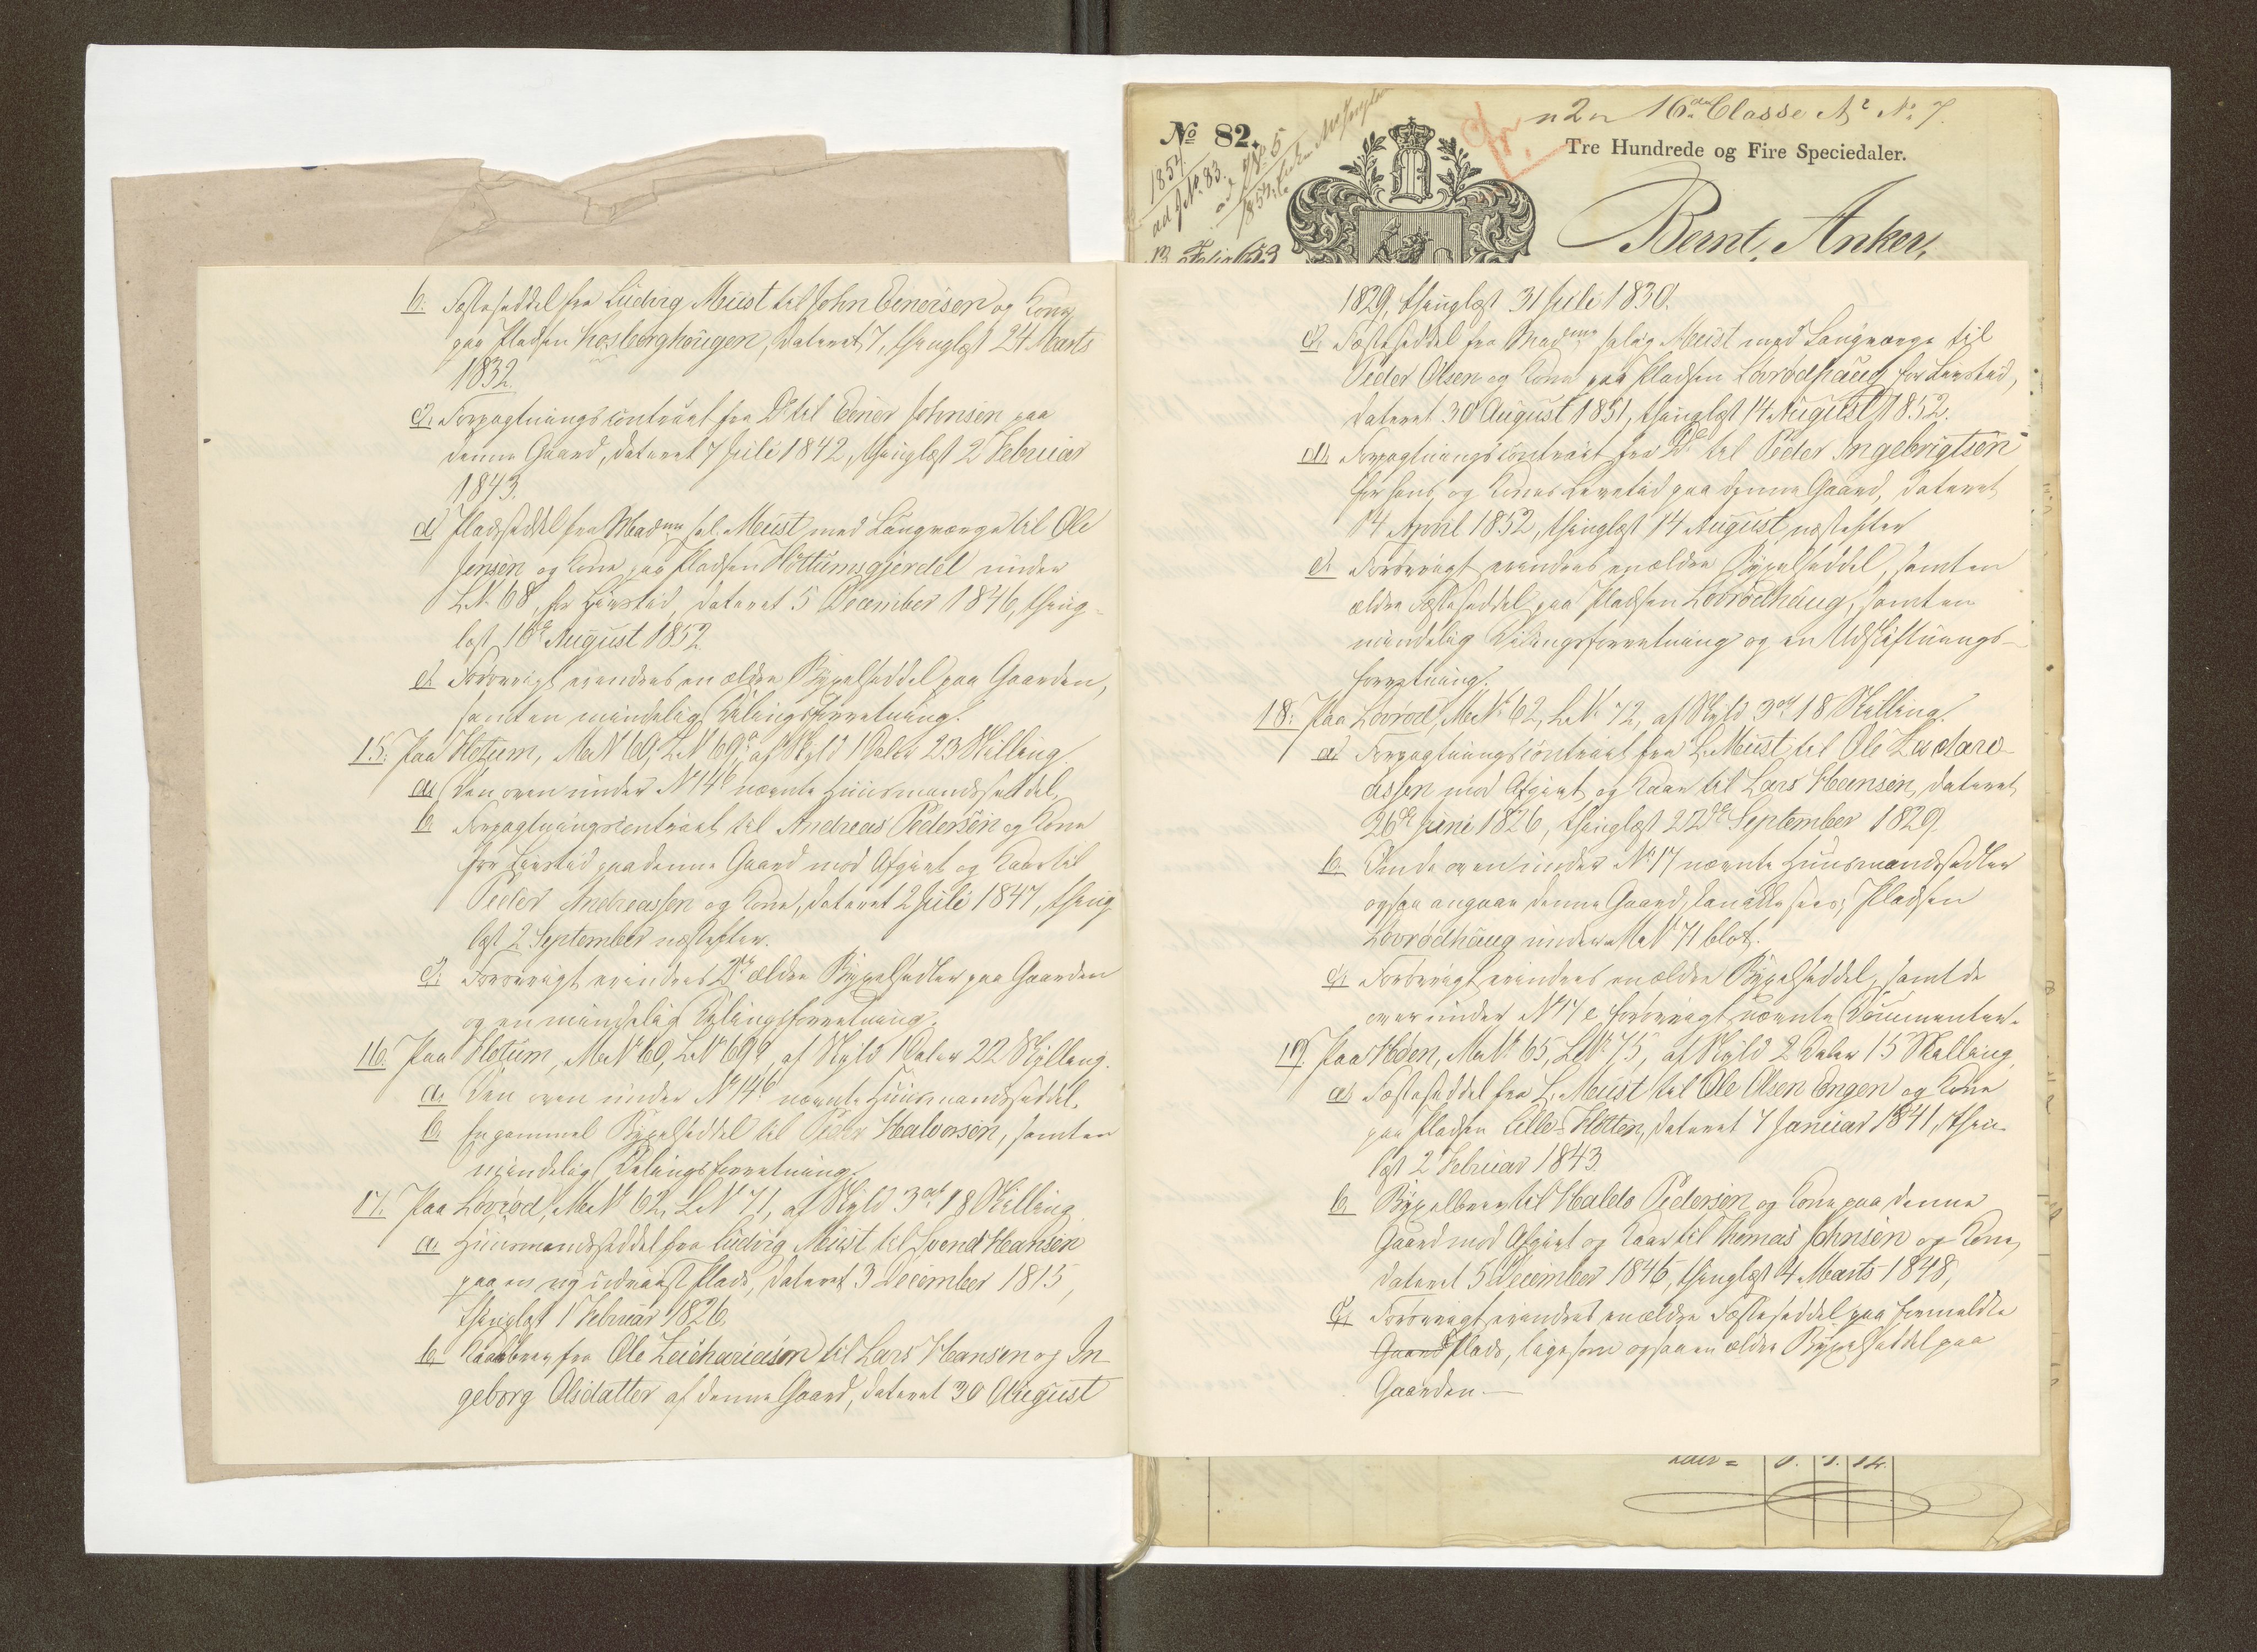 b. Fæsteseddel fra Ludvig Must til John Einersen og Kone
paa Pladsen Kosberghaugen, dateret 7, thinglæst 24 Marts
1832.
c. Forpagtningscontract fra Do til Einer Johnsen paa
denne Gaard, dateret 7 Juli 1842, thinglæst 2 Februar
1843.
d. Pladsseddel fra Madme sal. Must med Laugværge til Ole
Jensen og Kone paa Pladsen Holtumsgjerdet under
L.No 68, for Livstid, dateret 5 December 1846, thing-
læst 16de August 1852.
e. Forøvrigt erindres en ældre Bygselseddel paa Gaarden,
samt en mindelig Delingsforretning.
15. Paa Hotum, M.No 60, L.No 69, af Skyld 1 Daler 23 Skilling.
a. Den oven under No 14 nævnte Huusmandsseddel.
b. Forpagtningscontract til Andreas Pedersen og Kone
for Livstid paa denne Gaard mod Afgivt og Kaar til
Peder Andreassen og Kone, dateret 2 Juli 1847, thing-
læst 2 September næstefter.
c. Forøvrigt erindres 2de ældre Bygselsedler paa Gaarden
og en mindelig Delingsforretning.
16. Paa Hotum, M.No 60, L.No 69, af Skyld 1 Daler 22 Skilling.
a. Den oven under No 14 nævnte Huusmandsseddel.
b. En gammel Bygselseddel til Peder Halvorsen, samt en
mindelig Delingsforretning.
17. Paa Lovrød, M.No 62, L.No 71, af Skyld 3 18 Skilling.
a. Huusmandsseddel fra Ludvig Must til Svend Hansen
paa en ny Plads, dateret 3 December 1815,
thinglæst 1 Februar 1826.
b. Kaarbrev fra Ole Zachariasen til Lars Hansen og In-
geborg Olsdatter af denne Gaard, dateret 30 August
No 82.
1854.
ad No 83.
n 2 n 16de Classe No 7.
Tre Hundrede og Fire Speciedaler.
Bernt Anker,
1829, thinglæst 31 Juli 1830.
c. Fæsteseddel fra Madme salig Must med Laugværge til
Peder Olsen og Kone paa Pladsen Lovrødhaug for Livstid,
dateret 30 August 1851, thinglæst 14 August 1852.
d. Forpagtningscontract fra Do til Peder Ingebrigtsen
for hans og Kones Levetid paa denne Gaard, dateret
14 April 1852, thinglæst 14 August næstefter
e. Forøvrigt erindres en ældre Bygselseddel, samt en
ældre Fæsteseddel paa Pladsen Lovrødhaug, samt en
mindelig Delingsforretning og en Udskiftnings-
forretning.
18. Paa Lovrød, M.No 62, L.No 72, af Skyld 3 18 Skilling.
a. Forpagtningscontract fra L. Must til Ole Zacari-
assen mod Afgivt og Kaar til Lars Hansen, dateret
26de Juni 1826, thinglæst 22de September 1829.
b. Om de oven under No 17 nævnte Huusmandssedler
ogsaa angaar denne Gaard, Pladsen
Lovrødhaug under M.No 71 blot.
c. Forøvrigt erindres en ældre Bygselseddel, samt de
oven under No 17 e forøvrigt nævnte Documenter.
19. Paa Heden, M.No 65, L.No 75, af Skyld 2 Daler 15 Skilling
a. Fæsteseddel fra L. Must til Ole Olsen Engen og Kone
paa Pladsen Lille-Holten, dateret 7 Januar 1841, thin-
læst 2 Februar 1843.
b. Bygselbrev til Haldo Pedersen og Kone paa denne
Gaard mod Afgivt og Kaar til Thomas Johnsen og Kone,
dateret 5 December 1846, thinglæst 4 Marts 1848,
c. Forøvrigt erindres en ældre Fæsteseddel paa formeldte
Gaard Plads, ligesom ogsaa en ældre Bygselseddel paa
Gaarden.